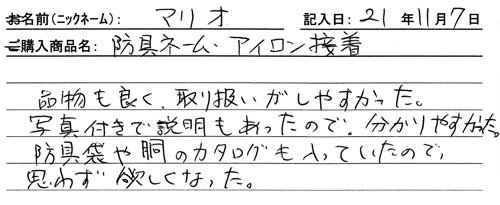 お名前(ニックネーム): マリオ 記入日: 21 年 11 月 7 日
ご購入商品名: 防具ネーム・アイロン接着
品物も良く、取り扱いがしやすかった。
写真付きで説明もあったので、分かりやすかった。
防具袋や胴のカタログも入っていたので、
思わず欲しくなった。